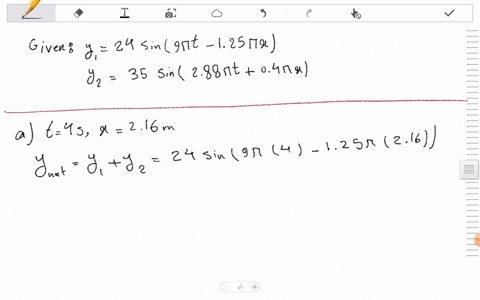 Given: y₁ = 24 sin(9πt - 1.25πx)
y₂ = 35 sin(2.88πt + 0.4πx)
a) t=4s, x = 2.16m
y_net = y₁ + y₂ = 24 sin(9π(4) - 1.25π(2.16))